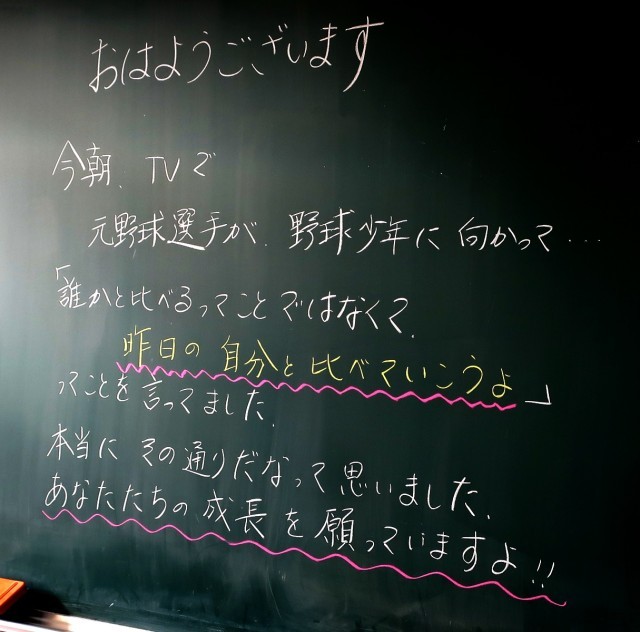 おはようございます
今朝、TVで
元野球選手が、野球少年に向かって…
「誰かと比べるってことではなくて、
昨日の自分と比べていこうよ」
ってことを言ってました、
本当にその通りだなって思いました、
あなたたちの成長を願っていますよ!!